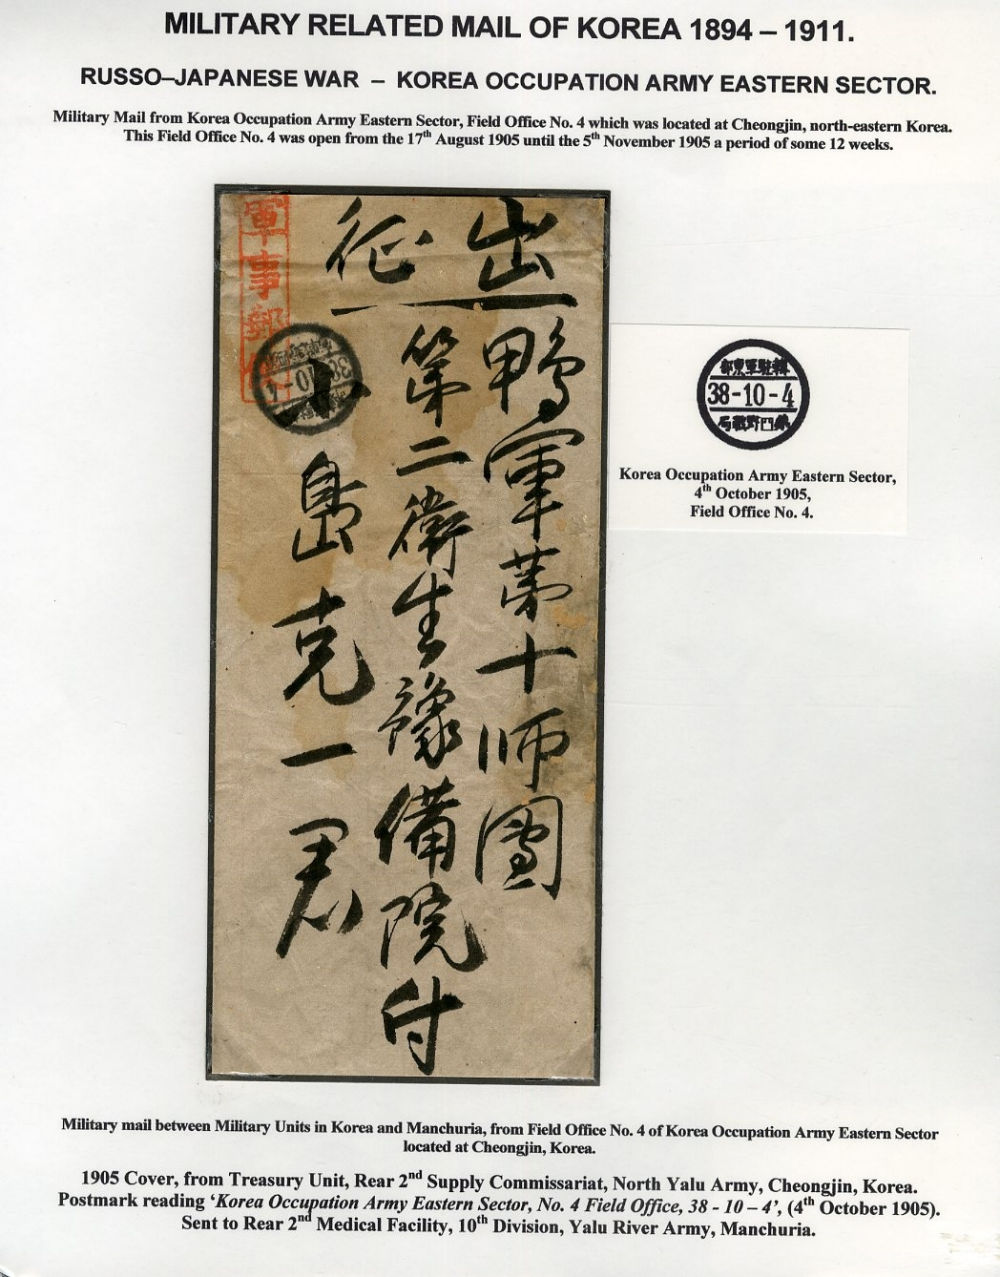 MILITARY RELATED MAIL OF KOREA 1894 – 1911.
RUSSO–JAPANESE WAR – KOREA OCCUPATION ARMY EASTERN SECTOR.
Military Mail from Korea Occupation Army Eastern Sector, Field Office No. 4 which was located at Cheongjin, north-eastern Korea.
This Field Office No. 4 was open from the 17th August 1905 until the 5th November 1905 a period of some 12 weeks.
出征
鴨軍第十師團
第二衛生豫備院付
小島克一君
軍事郵便
38-10-4
韓駐軍東部
38-10-4
第四野戰局
Korea Occupation Army Eastern Sector,
4th October 1905,
Field Office No. 4.
Military mail between Military Units in Korea and Manchuria, from Field Office No. 4 of Korea Occupation Army Eastern Sector
located at Cheongjin, Korea.
1905 Cover, from Treasury Unit, Rear 2nd Supply Commissariat, North Yalu Army, Cheongjin, Korea.
Postmark reading ‘Korea Occupation Army Eastern Sector, No. 4 Field Office, 38 - 10 – 4’, (4th October 1905).
Sent to Rear 2nd Medical Facility, 10th Division, Yalu River Army, Manchuria.